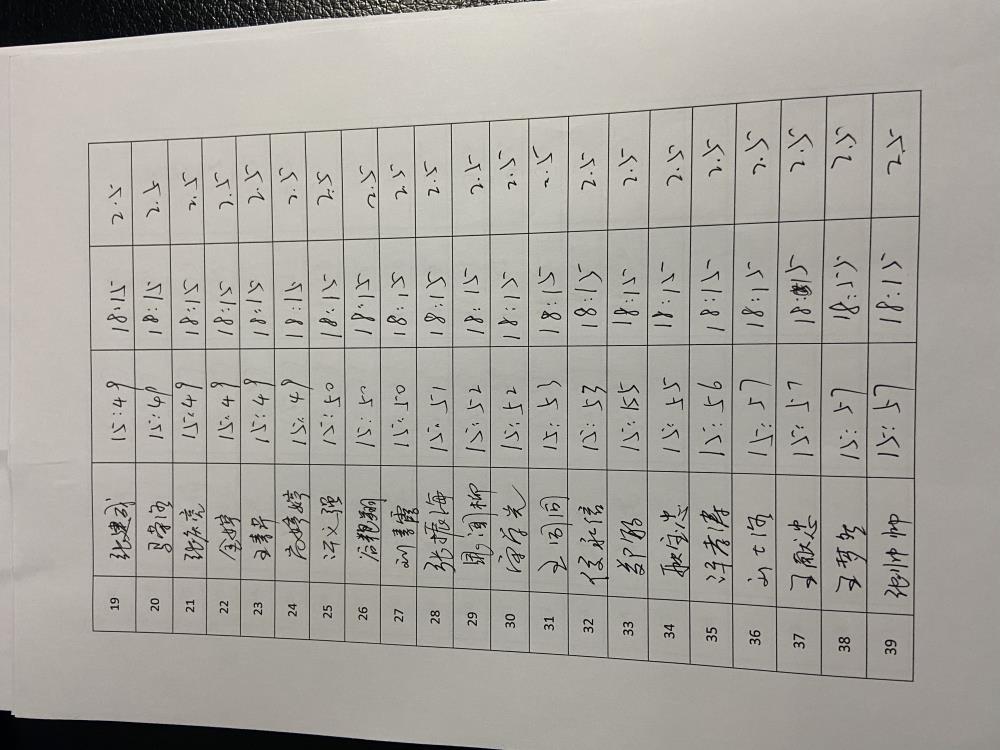 19 张建成 15:49 18:15 2.5
20 15:49 18:15 2.5
21 张亦亮 15:49 18:15 2.5
22 金婷 15:49 18:15 2.5
23 王春华 15:49 18:15 2.5
24 亢婷婷 15:49 18:15 2.5
25 汗义强 15:50 18:15 2.5
26 冶艳翔 15:50 18:15 2.5
27 刘春霞 15:50 18:15 2.5
28 张振海 15:51 18:15 2.5
29 15:52 18:15 2.5
30 15:52 18:15 2.5
31 王同同 15:53 18:15 2.5
32 侯永信 15:53 18:15 2.5
33 15:55 18:15 2.5
34 耿宝忠 15:55 18:15 2.5
35 许孝涛 15:56 18:15 2.5
36 15:57 18:15 2.5
37 王献忠 15:57 18:15 2.5
38 王梦 15:57 18:55 2.5
39 张帅帅 15:57 18:15 2.5